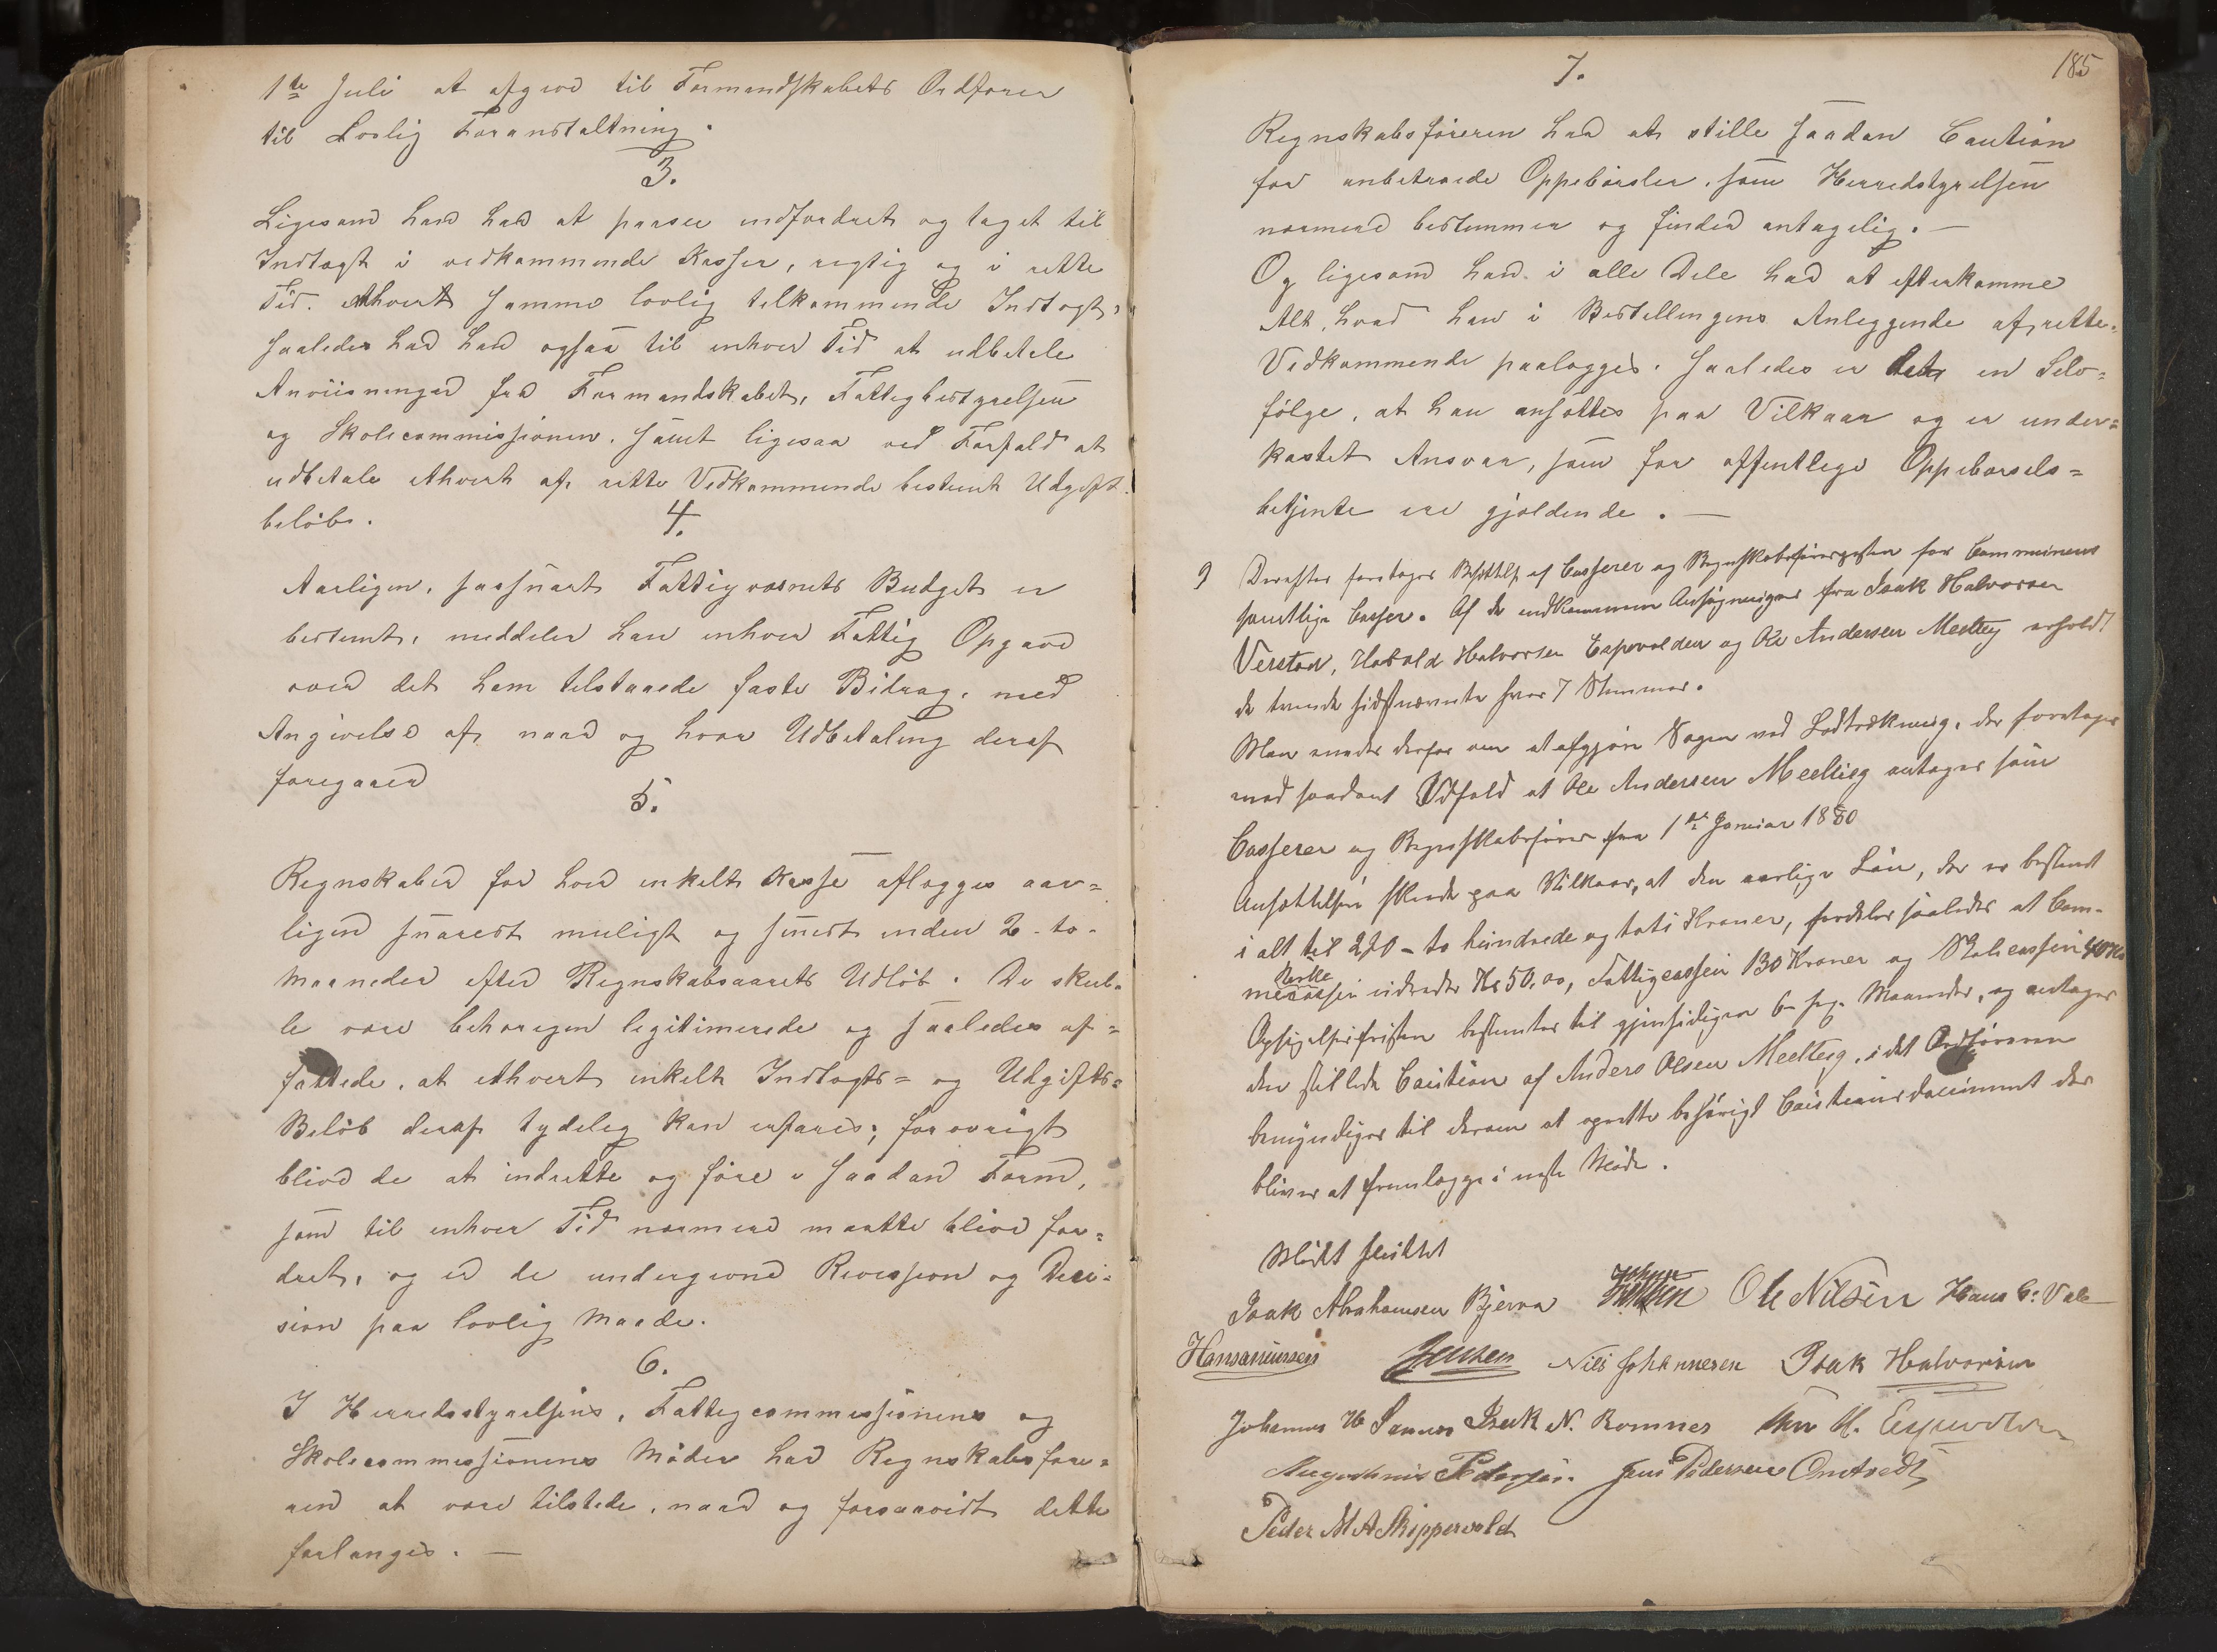 1ste Juli at afgive til Formandskabets Ordfører
til Lovlig Foranstaltning.
3.
Ligesom han har at paase indfordret og taget til
Indtægt i vedkommende Kasser, rigtig og i rette
Tid. ethvert samme lovlig tilkommende Indtægt,
saaledes har han ogsaa til enhver Tid at udbetale
Anviisninger fra Formandskabet, Fattigbestyrelsen
og Skolecommissionen, samt ligesaa ved Forfald at
udbetale ethvert af rette Vedkommende bestemt Udgift
beløb.
4.
Aarligen, saasnart Fattigvæsnets Budget er
bestemt, meddeler han enhver Fattig Opgave
over det ham tilstaaede faste Bidrag, med
Angivelse af naar og hvor Udbetaling deraf
foregaaer
5.
Regnskaber for hver enkelt Kasse aflægges aar=
ligen snarest muligt og senest inden 2 - to -
Maaneder efter Regnskabsaarets Udløb. De skul-
le være behørigen legitimerede og saaledes af=
fattede, at ethvert enkelt Indtægts= og Udgifts=
Beløb deraf tydelig kan erfares; forøvrigt
bliver de at indrette og føre i saadan Form,
som til enhver Tid nærmere maatte blive for=
dret, og er de undergivne Revission og Deci=
sion paa lovlig Maade.
6.
I Herredsstyrelsens, Fattigcommissionens og
Skolecommissionens Møder har Regnskabsføre=
ren at være tilstede, naar og forsaavidt dette
forlanges. —
185
7.
Regnskabsføreren har at stille saadan Caution
for anbetroede Oppebørsler, som Herredstyrelsen
nærmere bestemmer og finder antagelig. —
Og ligesom han i alle Dele har at efterkomme
Alt, hvad han i Bestillingens Anleggende af rette
Vedkommende paalægges. Saaledes er det en Selv=
følge, at han ansættes paa Vilkaar og er under=
kastet Ansvar, som for offentlige Oppebørsels=
betjente ere gjældende. —
9 Derefter foretoges af Casserer og Regnskabsførerposten for Communens
samtlige Casser. Af de indkomne Ansøgninger fra Isak Halvorsen
Verstad, Halvorsen Espevolden og Ole Andersen Melteig erholdt
de tvende sidstnævnte hver 7 Stemmer.
Man enedes derfor om at afgjøre Sagen ved Lodtrækning, der foretoges
med saadant Udfald at Ole Andersen Melteig antages som
Casserer og Regnskabsfører fra 1ste Januar 1880
Ansættelsen skeede paa Vilkaar, at den aarlige Løn, der er bestemt
i alt til 220 - to hundrede og toti Kroner, fordeles saaledes at Com-
munekassen udreder Kr 50,00, Fattigcassen 130 Kroner og Skolecassen 40 Kr
Opsigelsesfristen bestemtes til gjensidigen 6 - sex Maaneder, og antages
den stillede Caution af Anders Olsen Melteig, idet Ordføreren
bemyndiges til derom at oprette behørigt Cautionsdocument der
bliver at fremlægge i neste Møde.
Mødet sluttet
Isak Abrahamsen Bjerva Ole Nilsen Hans C. Vale
Jensen Nils Johannesen Isak Halvorsen
Johannes H Isak N. Romnes H. Espevolden
Pedersen. Jens Pedersen Omtvedt
Peder M A Skippervold